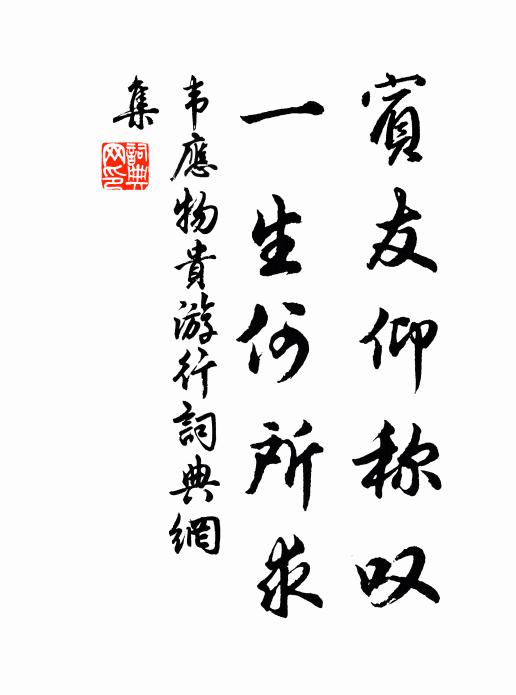 賓友仰称叹
一生何所求
韦應物貴游行詞典網
集
詞典网印